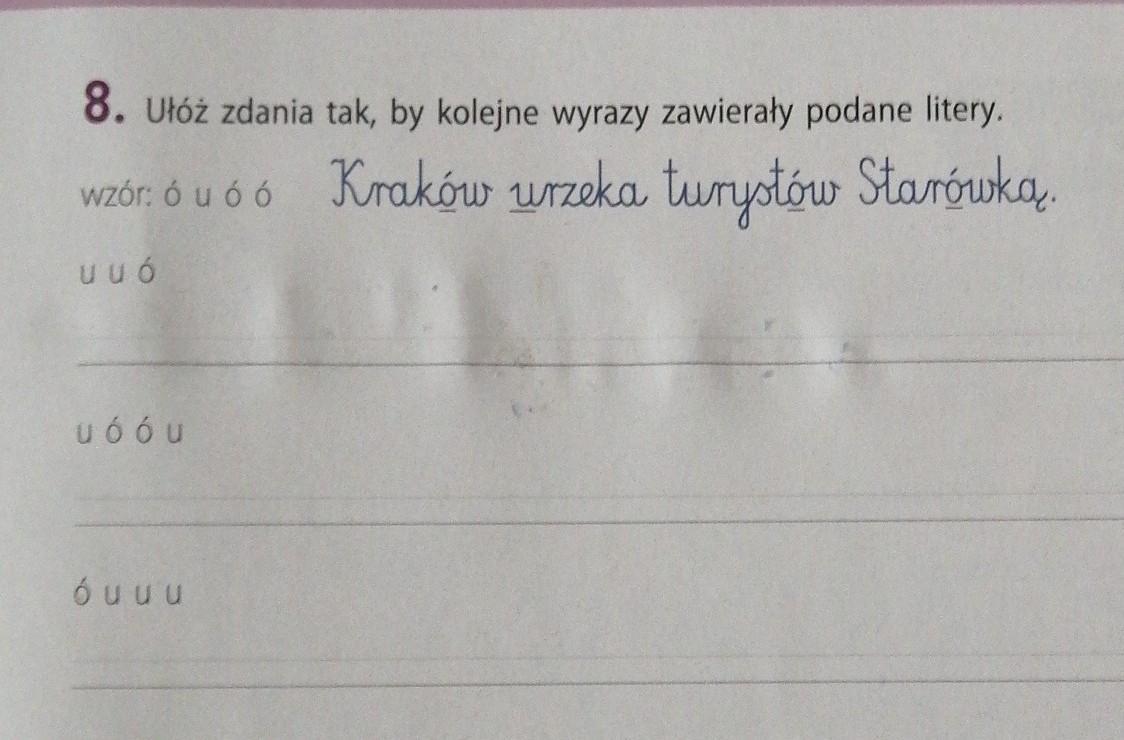 8. Ułóż zdania tak, by kolejne wyrazy zawierały podane litery.
wzór: ó u ó ó Kraków urzeka turystów Starówką.
u u ó
u ó ó u
ó u u u